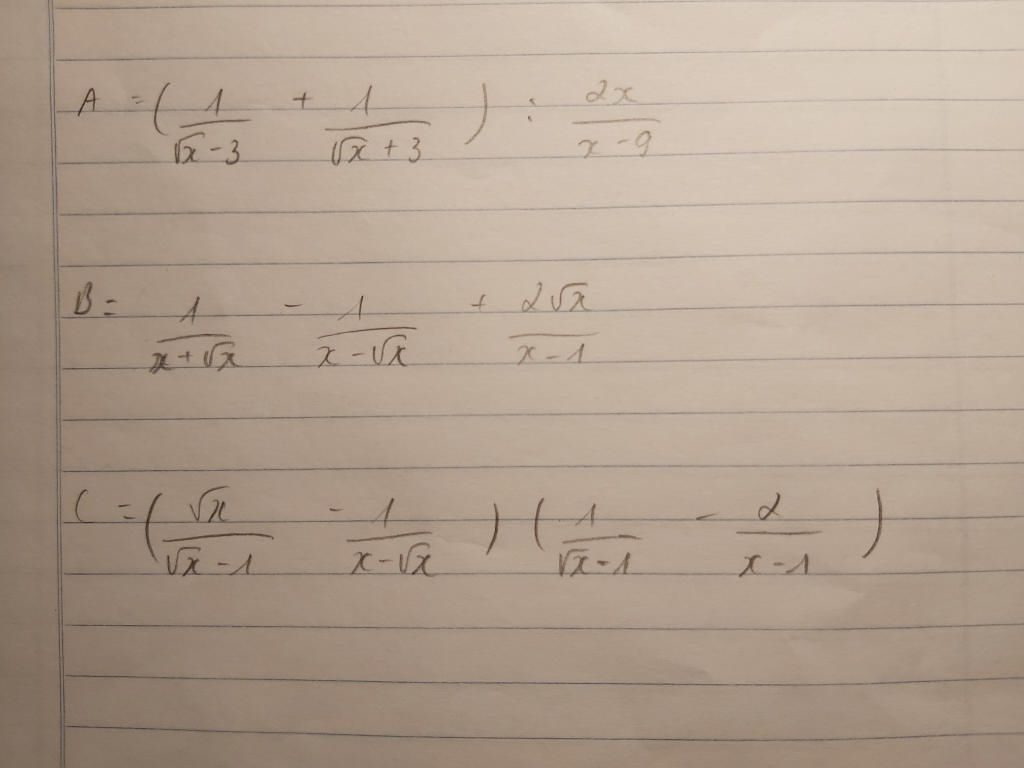 A = ( 1/(√x - 3) + 1/(√x + 3) ) : 2x/(x - 9)
B = 1/(x + √x) - 1/(x - √x) + 2√x/(x - 1)
C = ( √x/(√x - 1) - 1/(x - √x) ) ( 1/(√x - 1) - 2/(x - 1) )